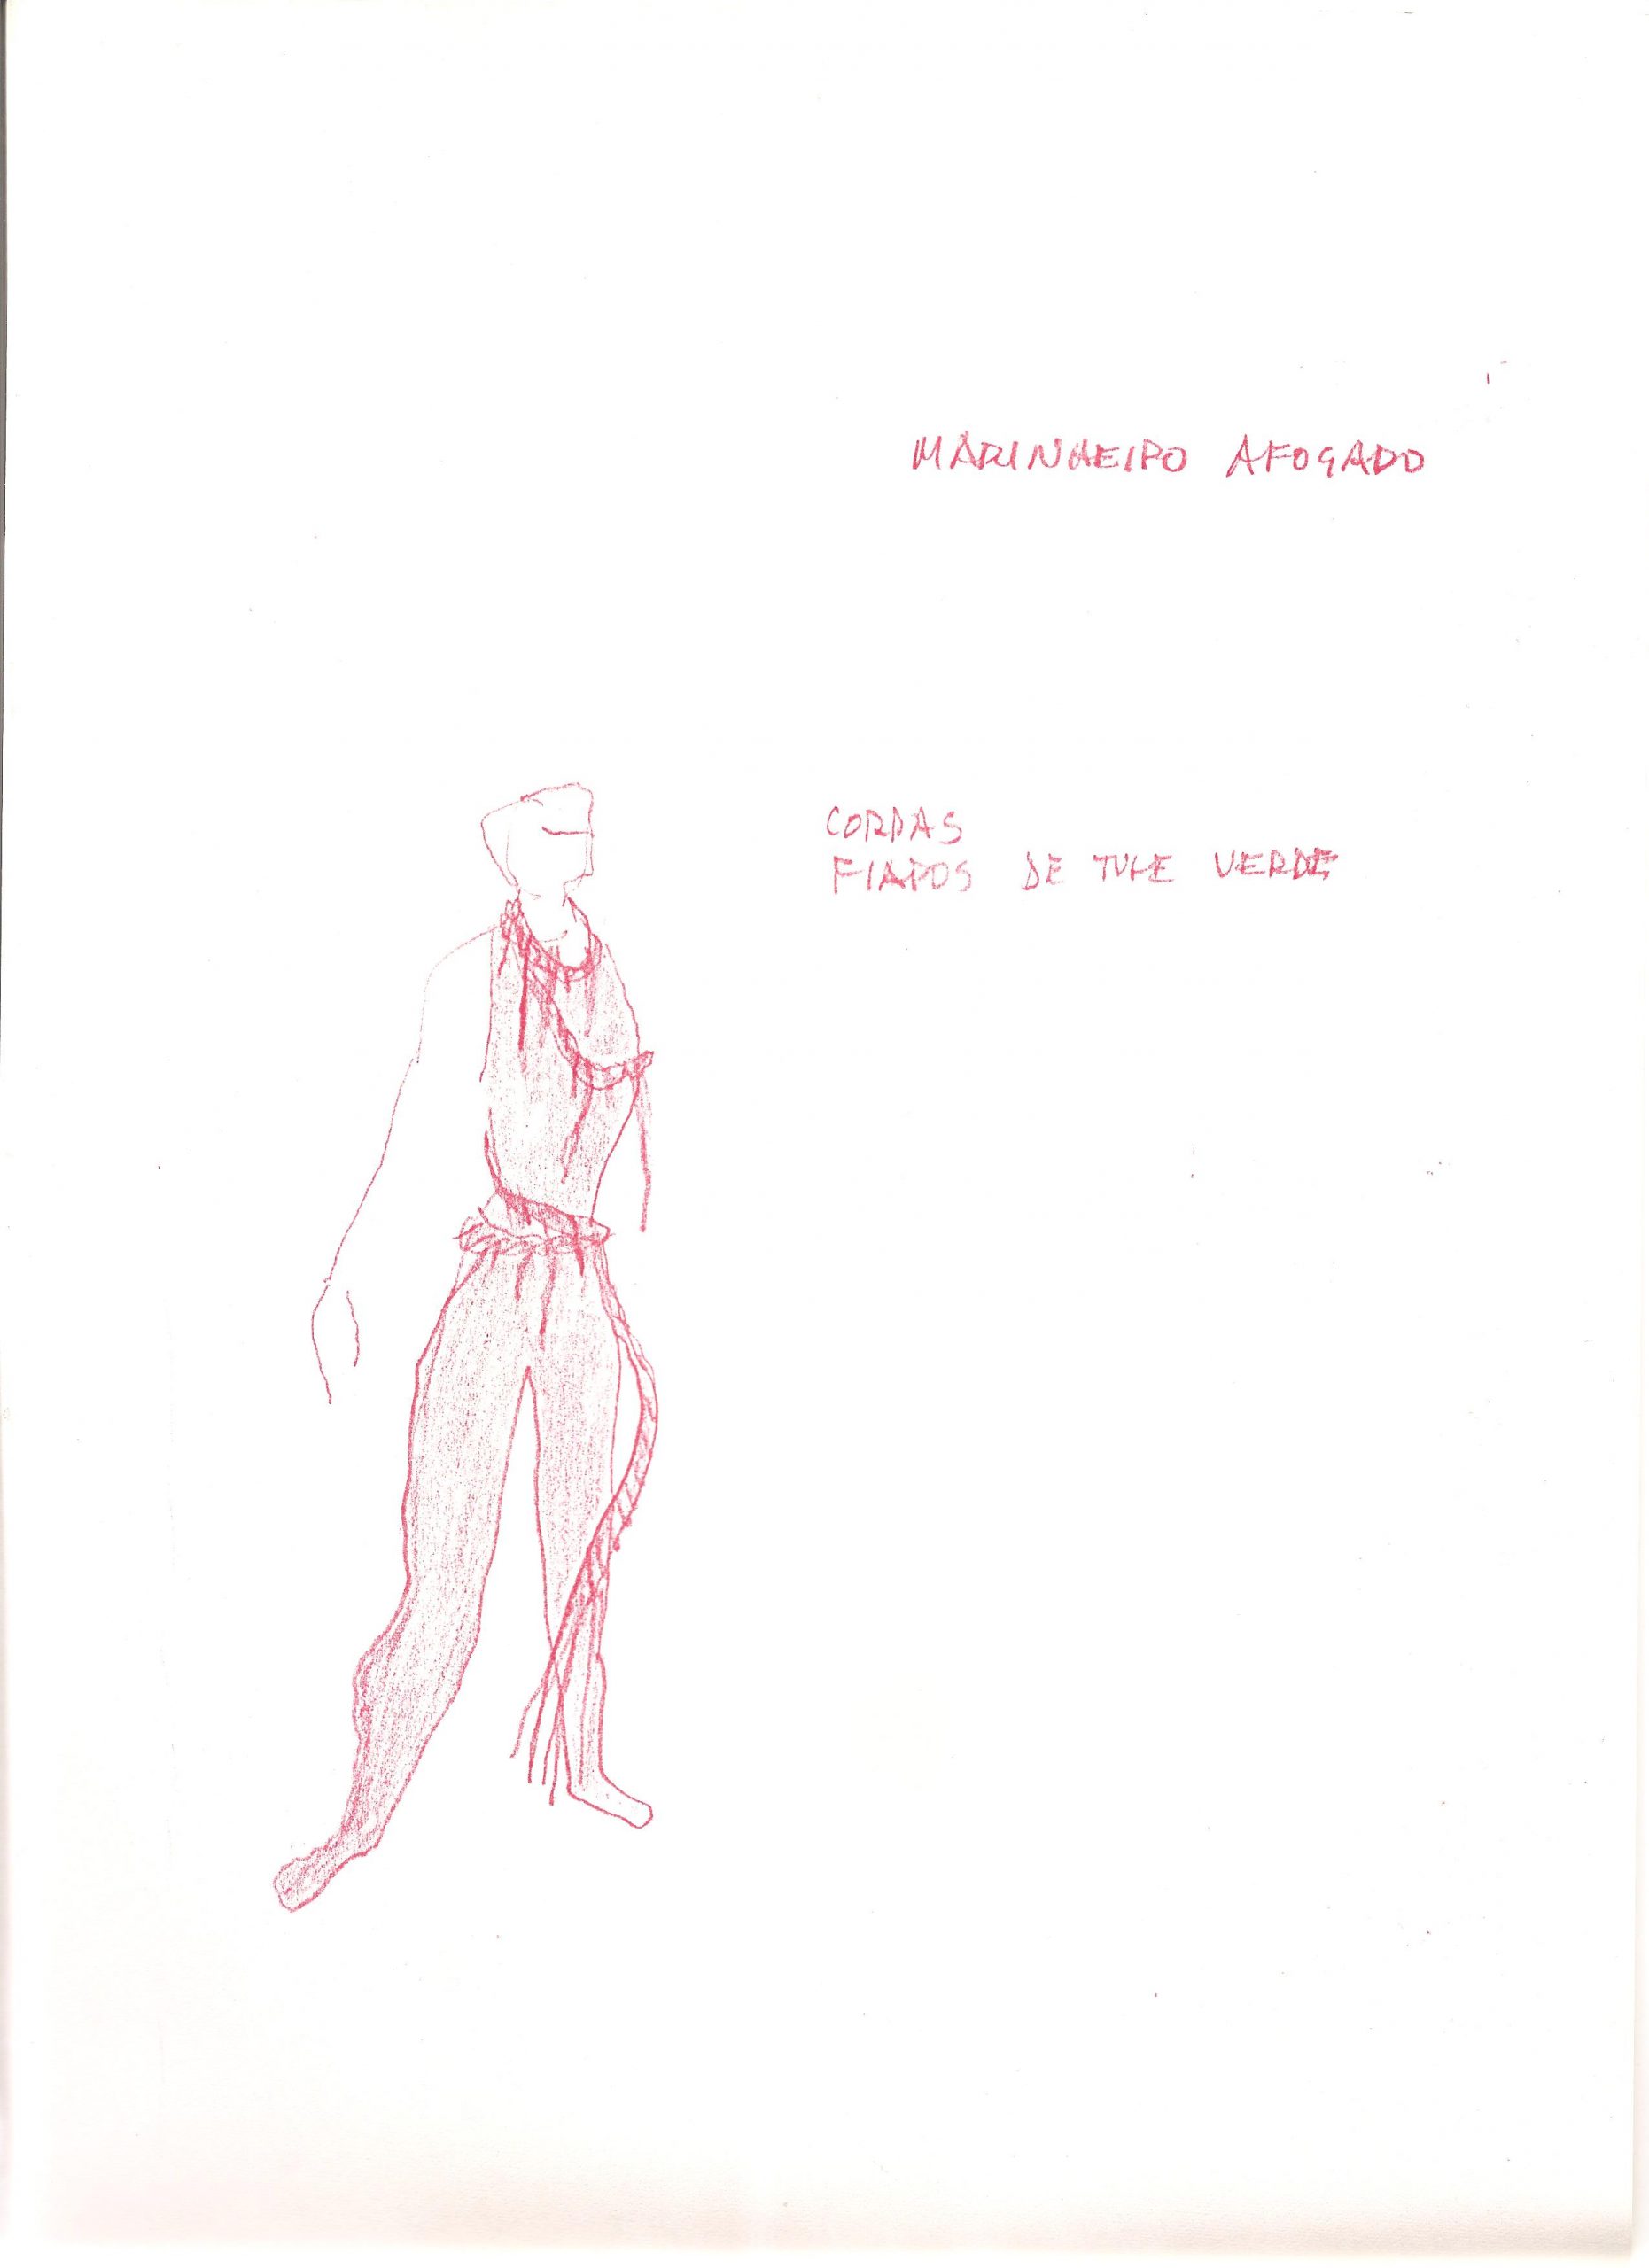 MARINHEIRO AFOGADO
CORDAS
FIAPOS DE TULE VERDE